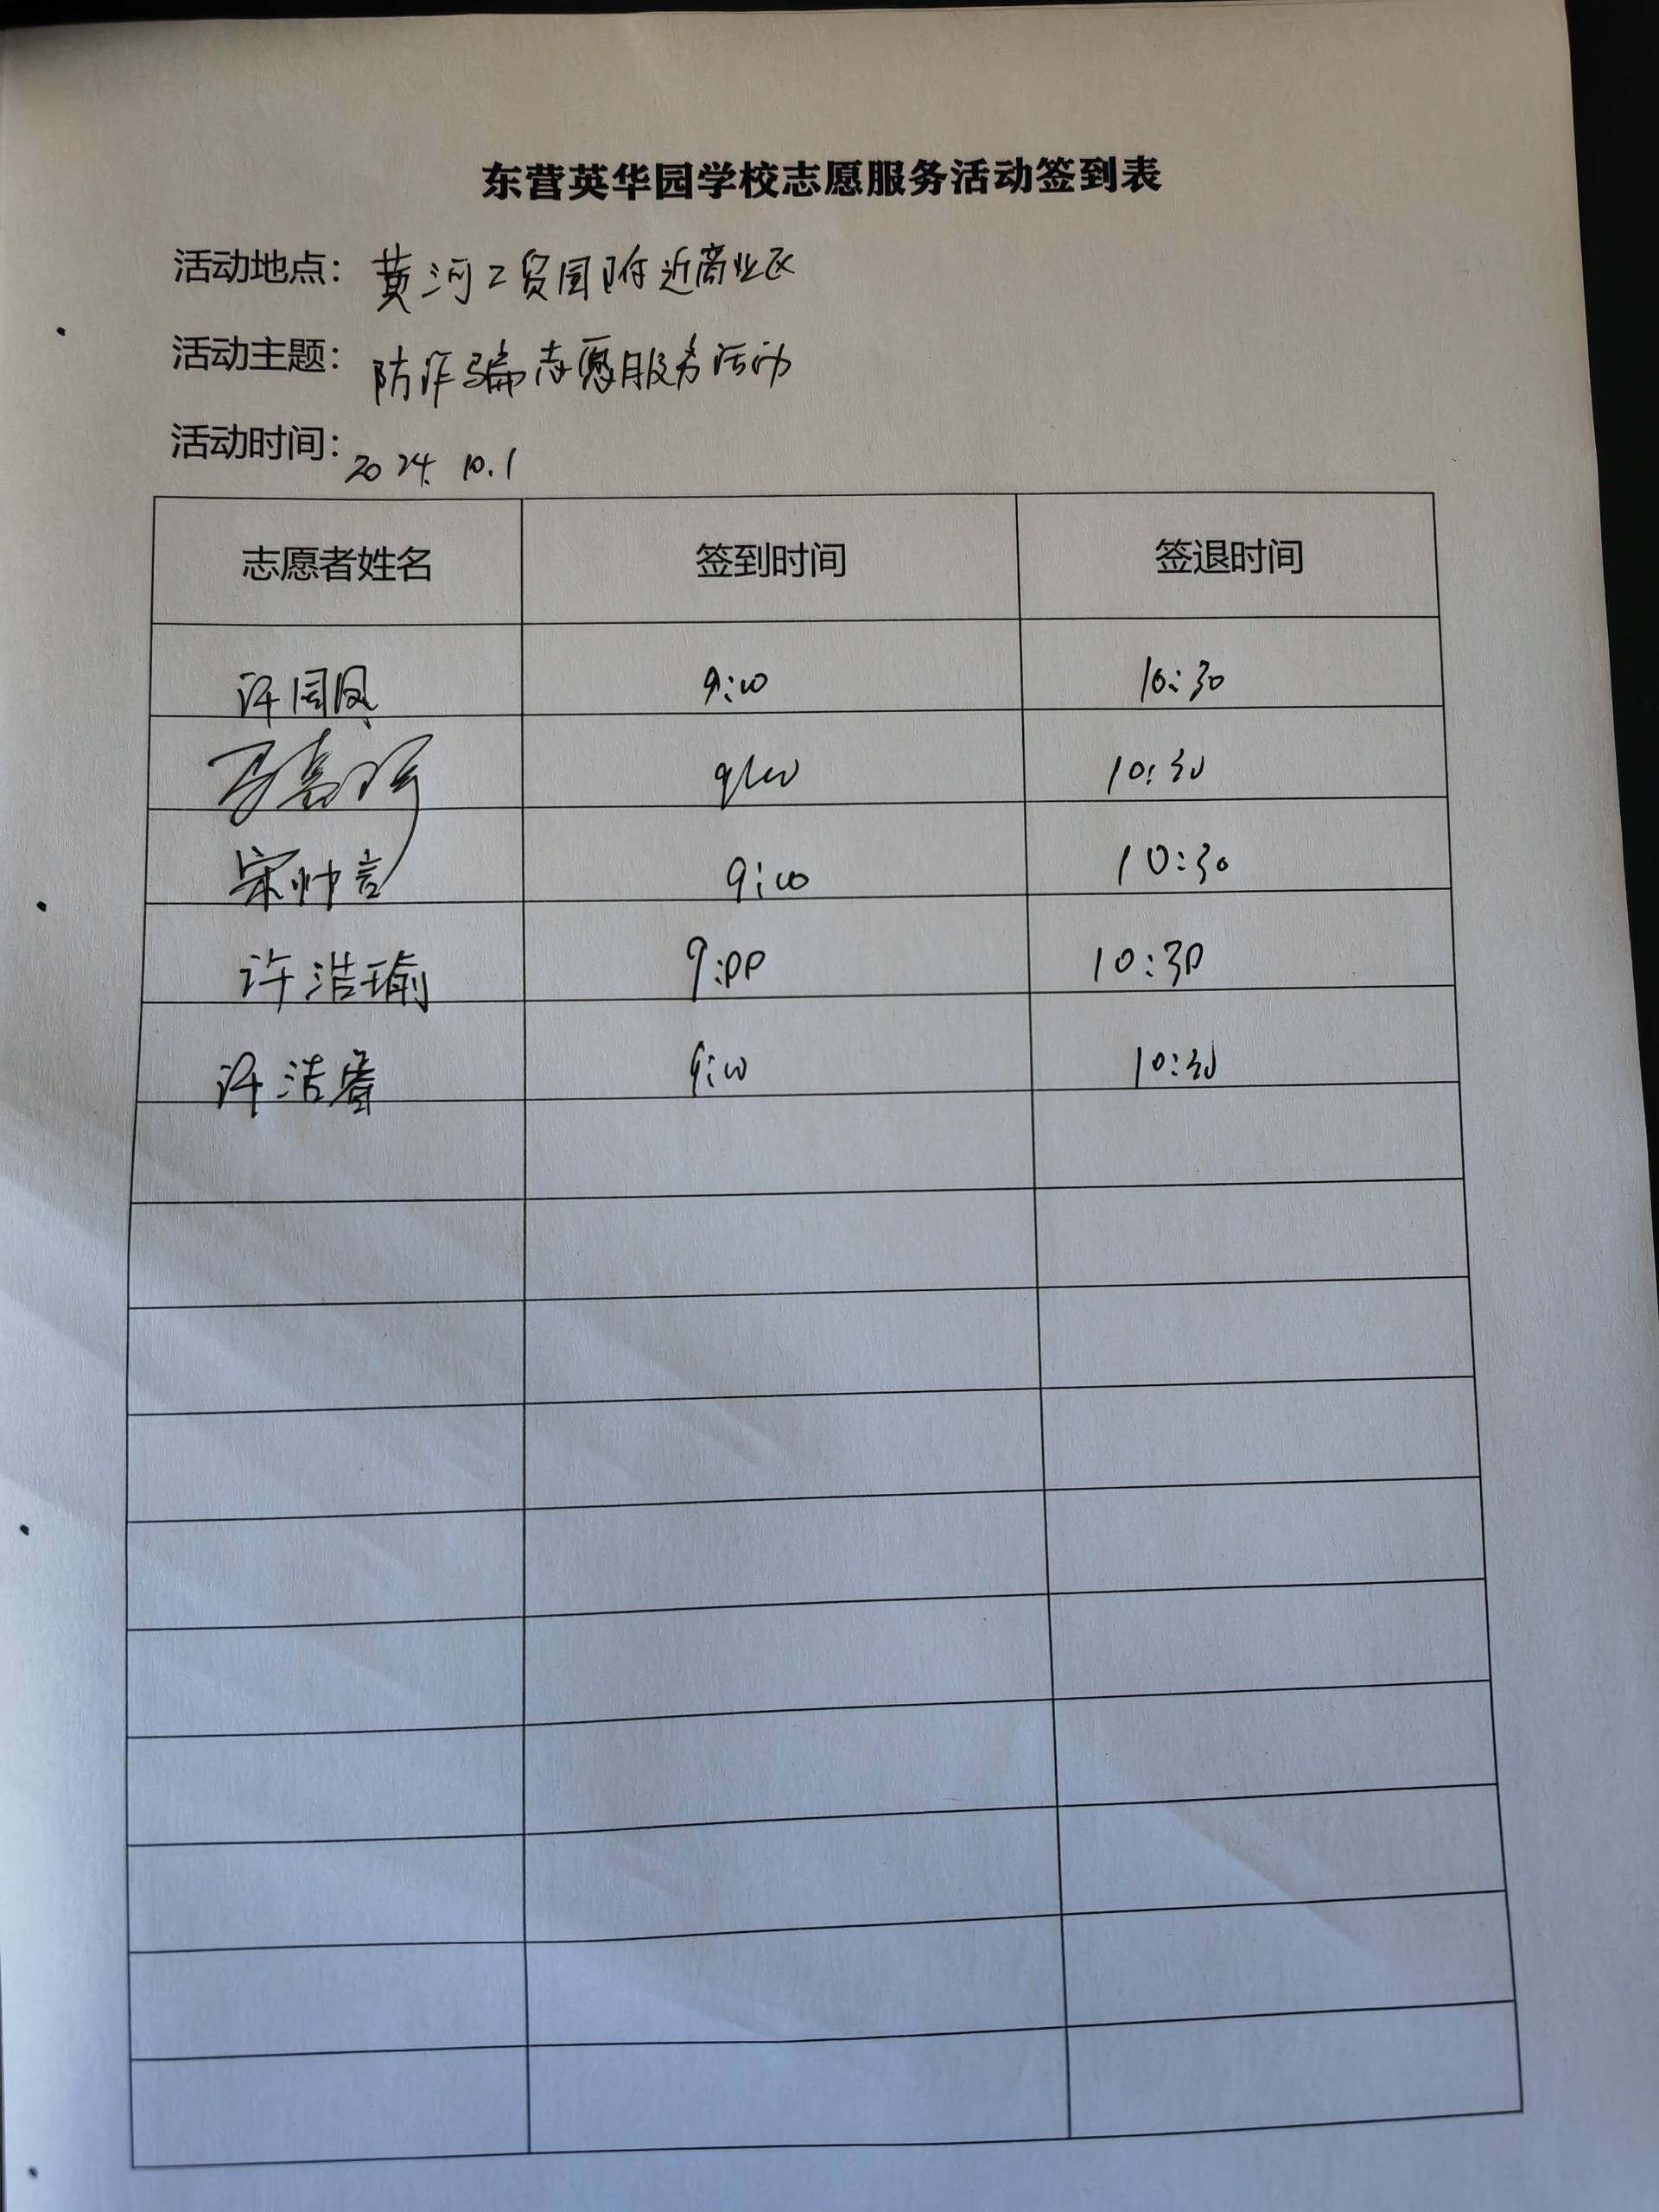 东营英华园学校志愿服务活动签到表
活动地点：黄河工贸园附近商业区
活动主题：防诈骗志愿服务活动
活动时间：2024.10.1
志愿者姓名 签到时间 签退时间
许国凤 9:00 10:30
9:00 10:30
宋帅言 9:00 10:30
许浩瑜 9:00 10:30
许洁睿 9:00 10:30